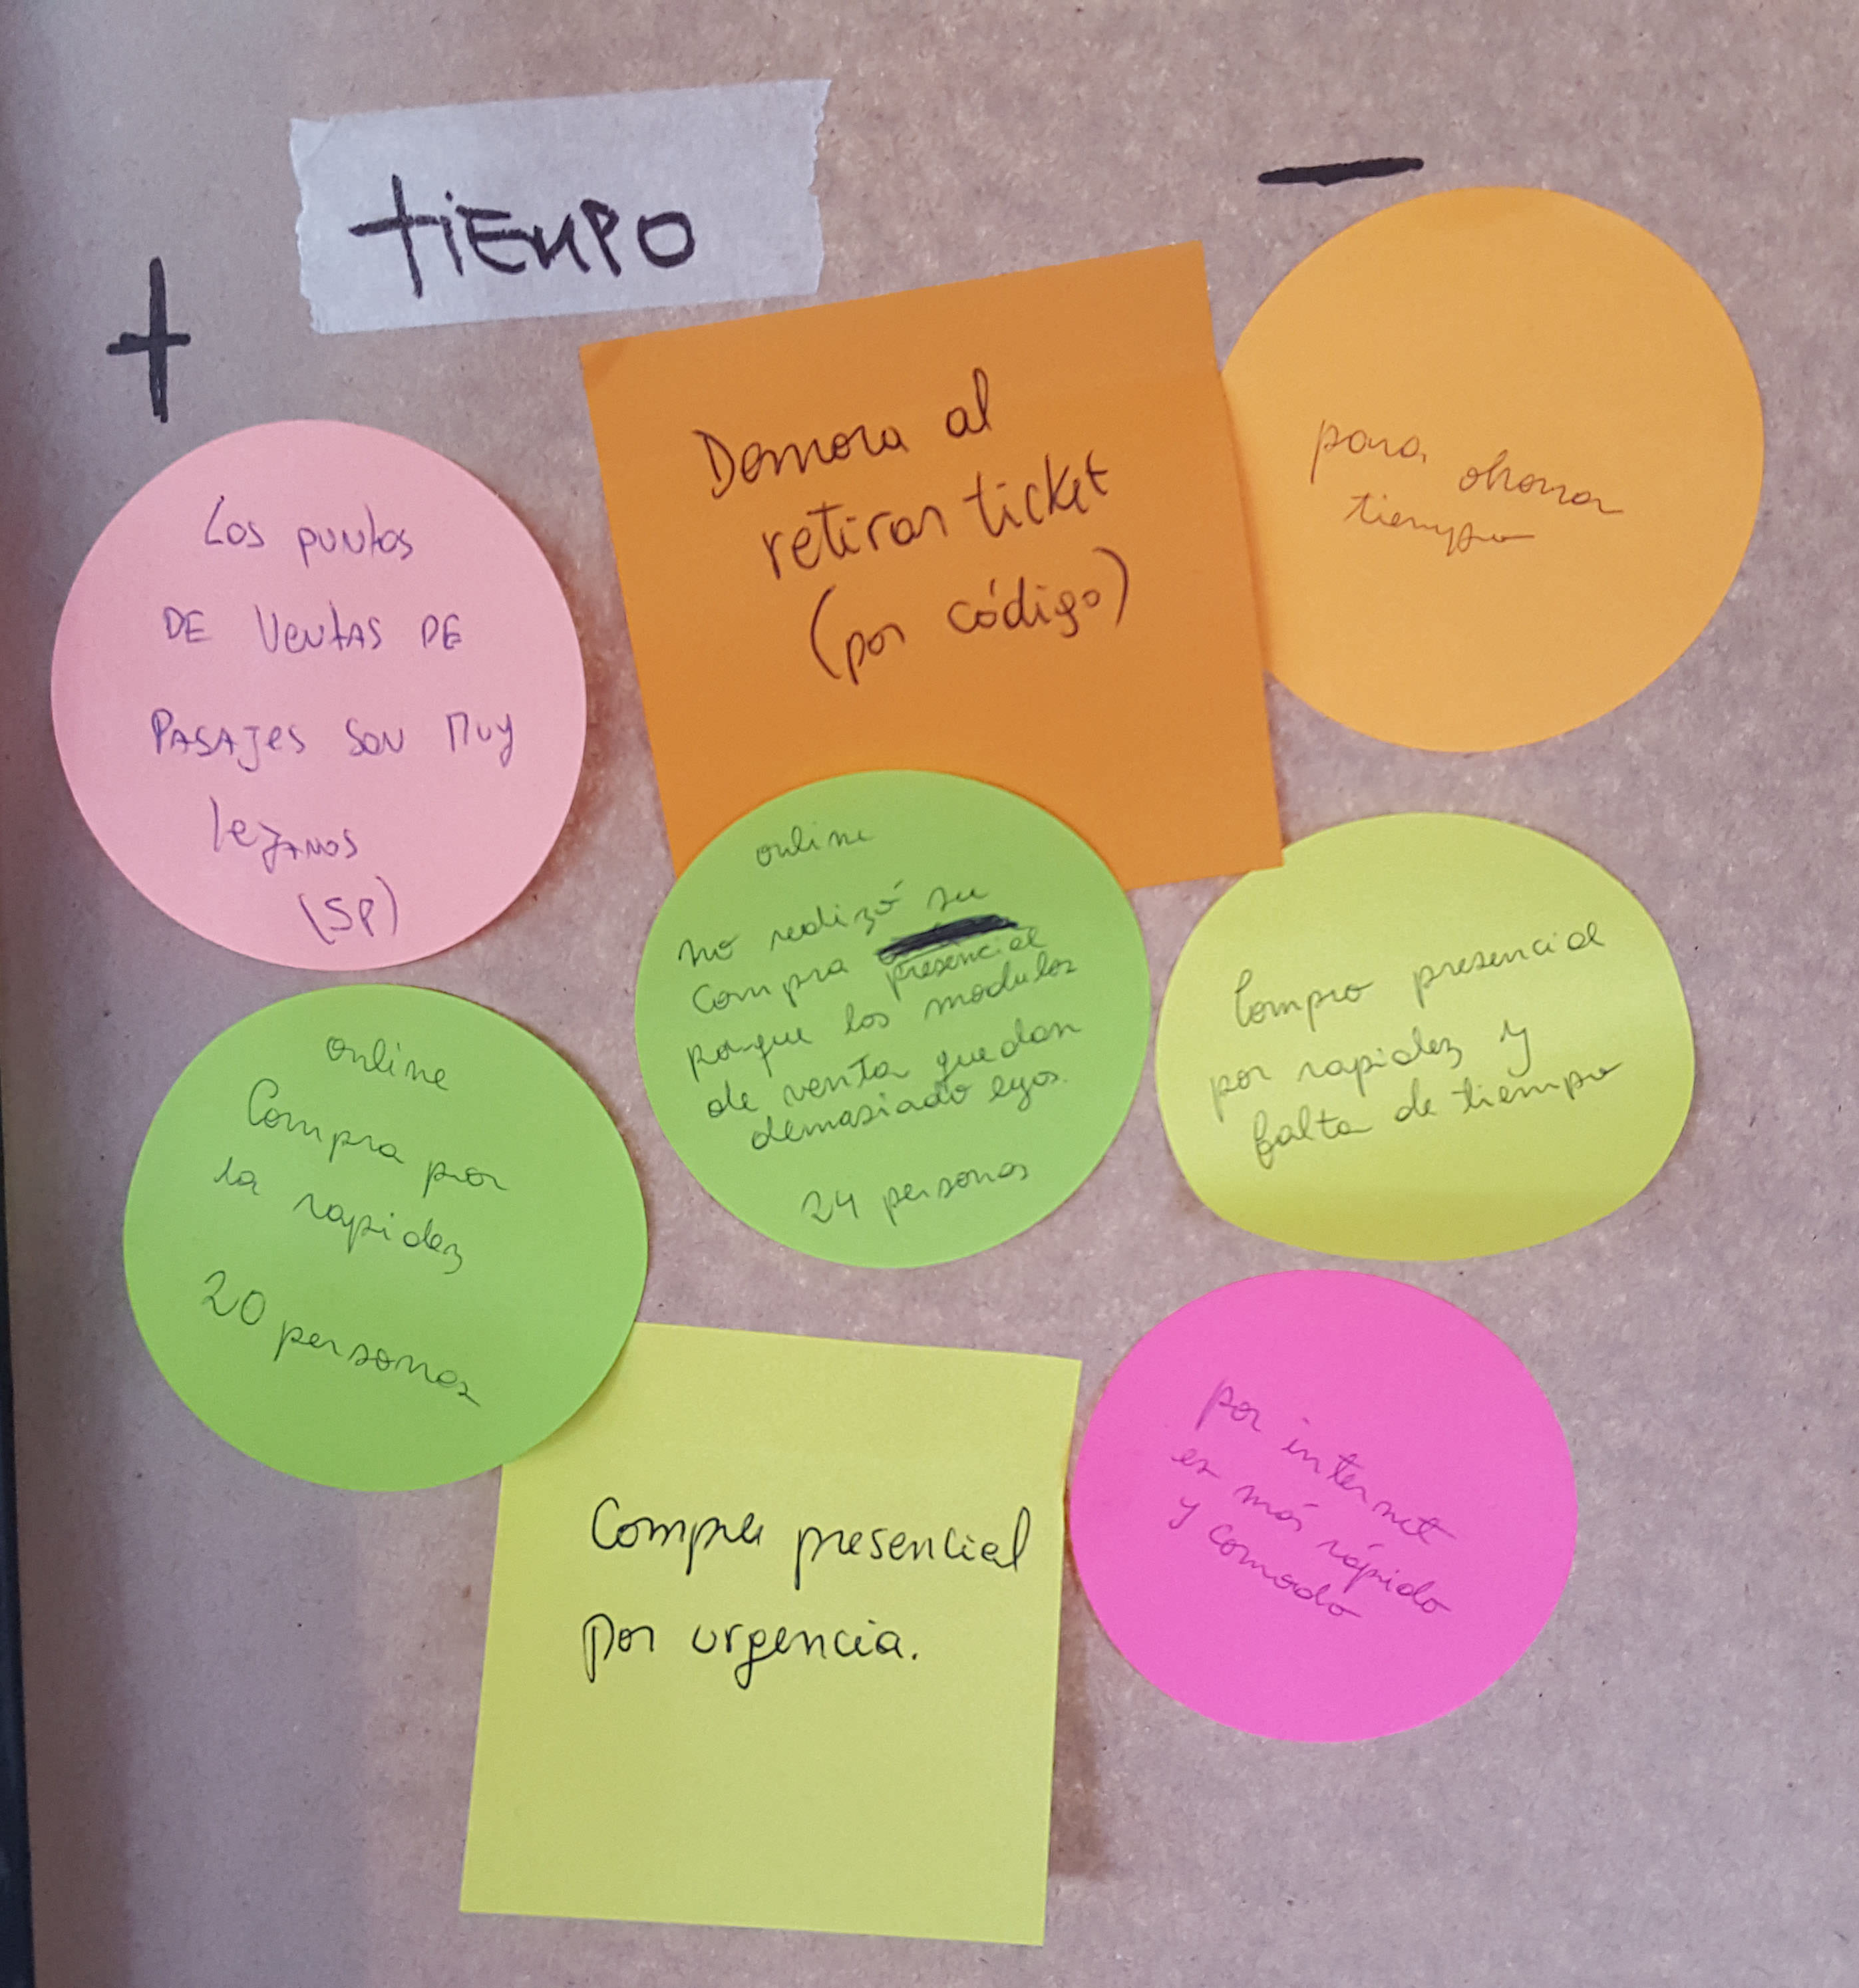 tiEMPO
+
−
Los puntos
DE VENTAS DE
PASAJES SON MUY
lejanos
(SP)
Demora al
retirar ticket
(por código)
para ahorrar
tiempo
online
no realizó su
compra presencial
porque los modulos
de venta quedan
demasiado lejos.
24 personas
Compro presencial
por rapidez y
falta de tiempo
online
Compra por
la rapidez
20 personas
Compra presencial
por urgencia.
por internet
es más rápido
y comodo